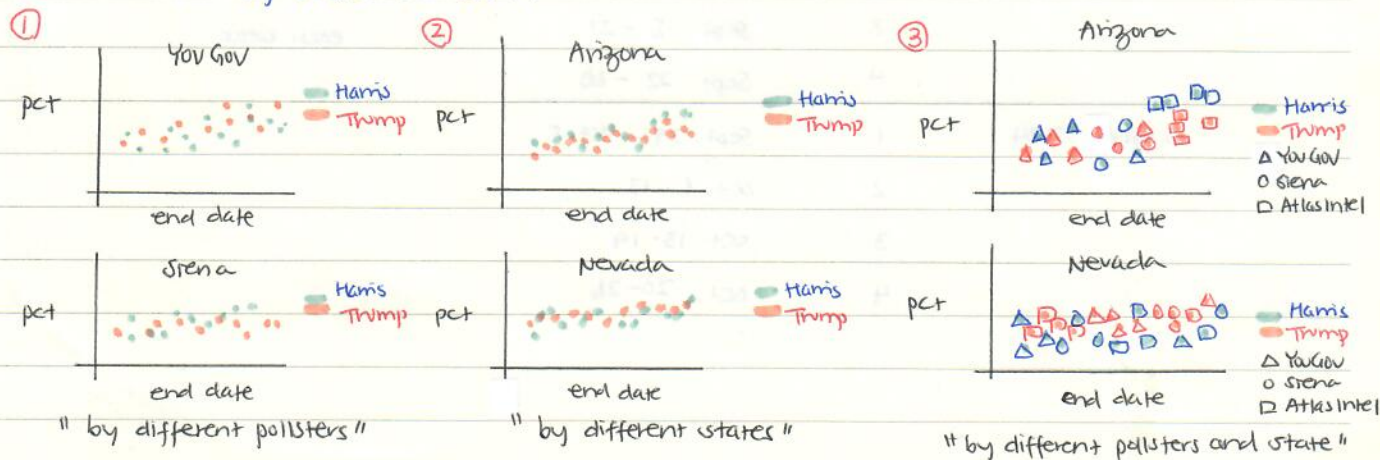 ①
YouGov
pct
Harris
Trump
end date
Siena
pct
Harris
Trump
end date
" by different pollsters "
②
Arizona
pct
Harris
Trump
end date
Nevada
pct
Harris
Trump
end date
" by different states "
③
Arizona
pct
Harris
Trump
△ YouGov
○ Siena
□ AtlasIntel
end date
Nevada
pct
Harris
Trump
△ YouGov
○ Siena
□ AtlasIntel
end date
" by different pollsters and state "